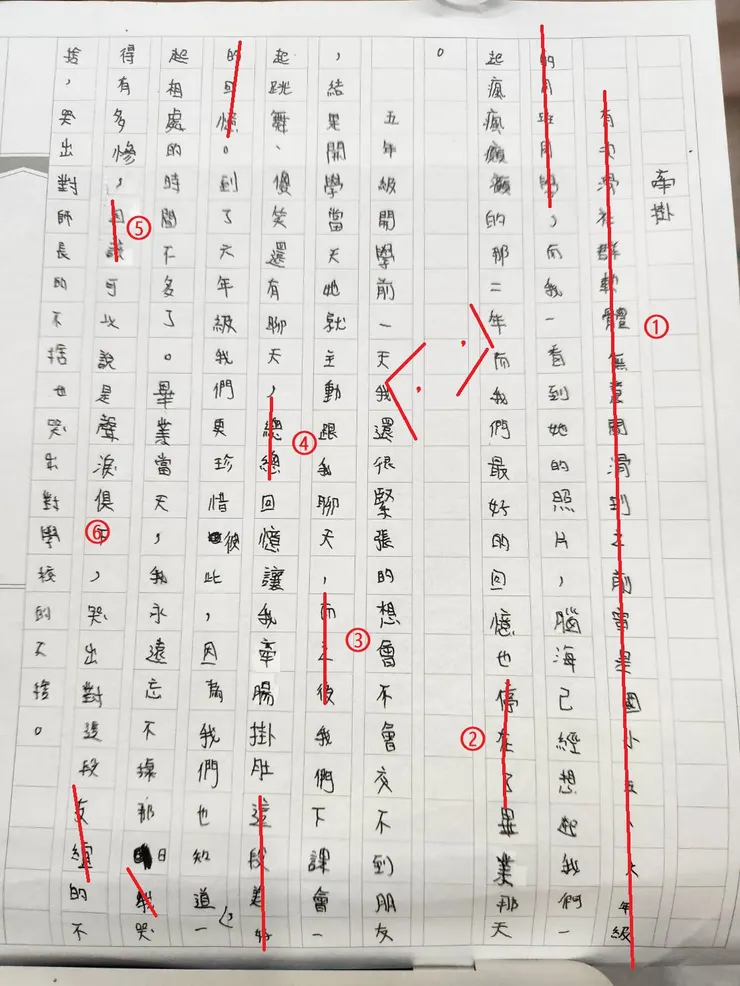 牽掛
有次滑社群軟體無意間滑到之前當是國小五、六年級
的同班同學，而我一看到她的照片，腦海已經想起我們一
起瘋瘋癲癲的那二年而我們最好的回憶也停在了畢業那天
。
五年級開學前一天我還很緊張的想會不會交不到朋友
，結果開學當天她就主動跟我聊天，而之後我們下課會一
起跳舞、傻笑還有聊天，總總回憶讓我牽腸掛肚這段美好
的回憶。到了六年級我們更珍惜彼此，因為我們也知道一
起相處的時間不多了。畢業當天，我永遠忘不掉那日我哭
得有多慘，因該可以說是聲淚俱下，哭出對這段友誼的不
捨，哭出對師長的不捨也哭出對學校的不捨。
①
②
③
④
⑤
⑥